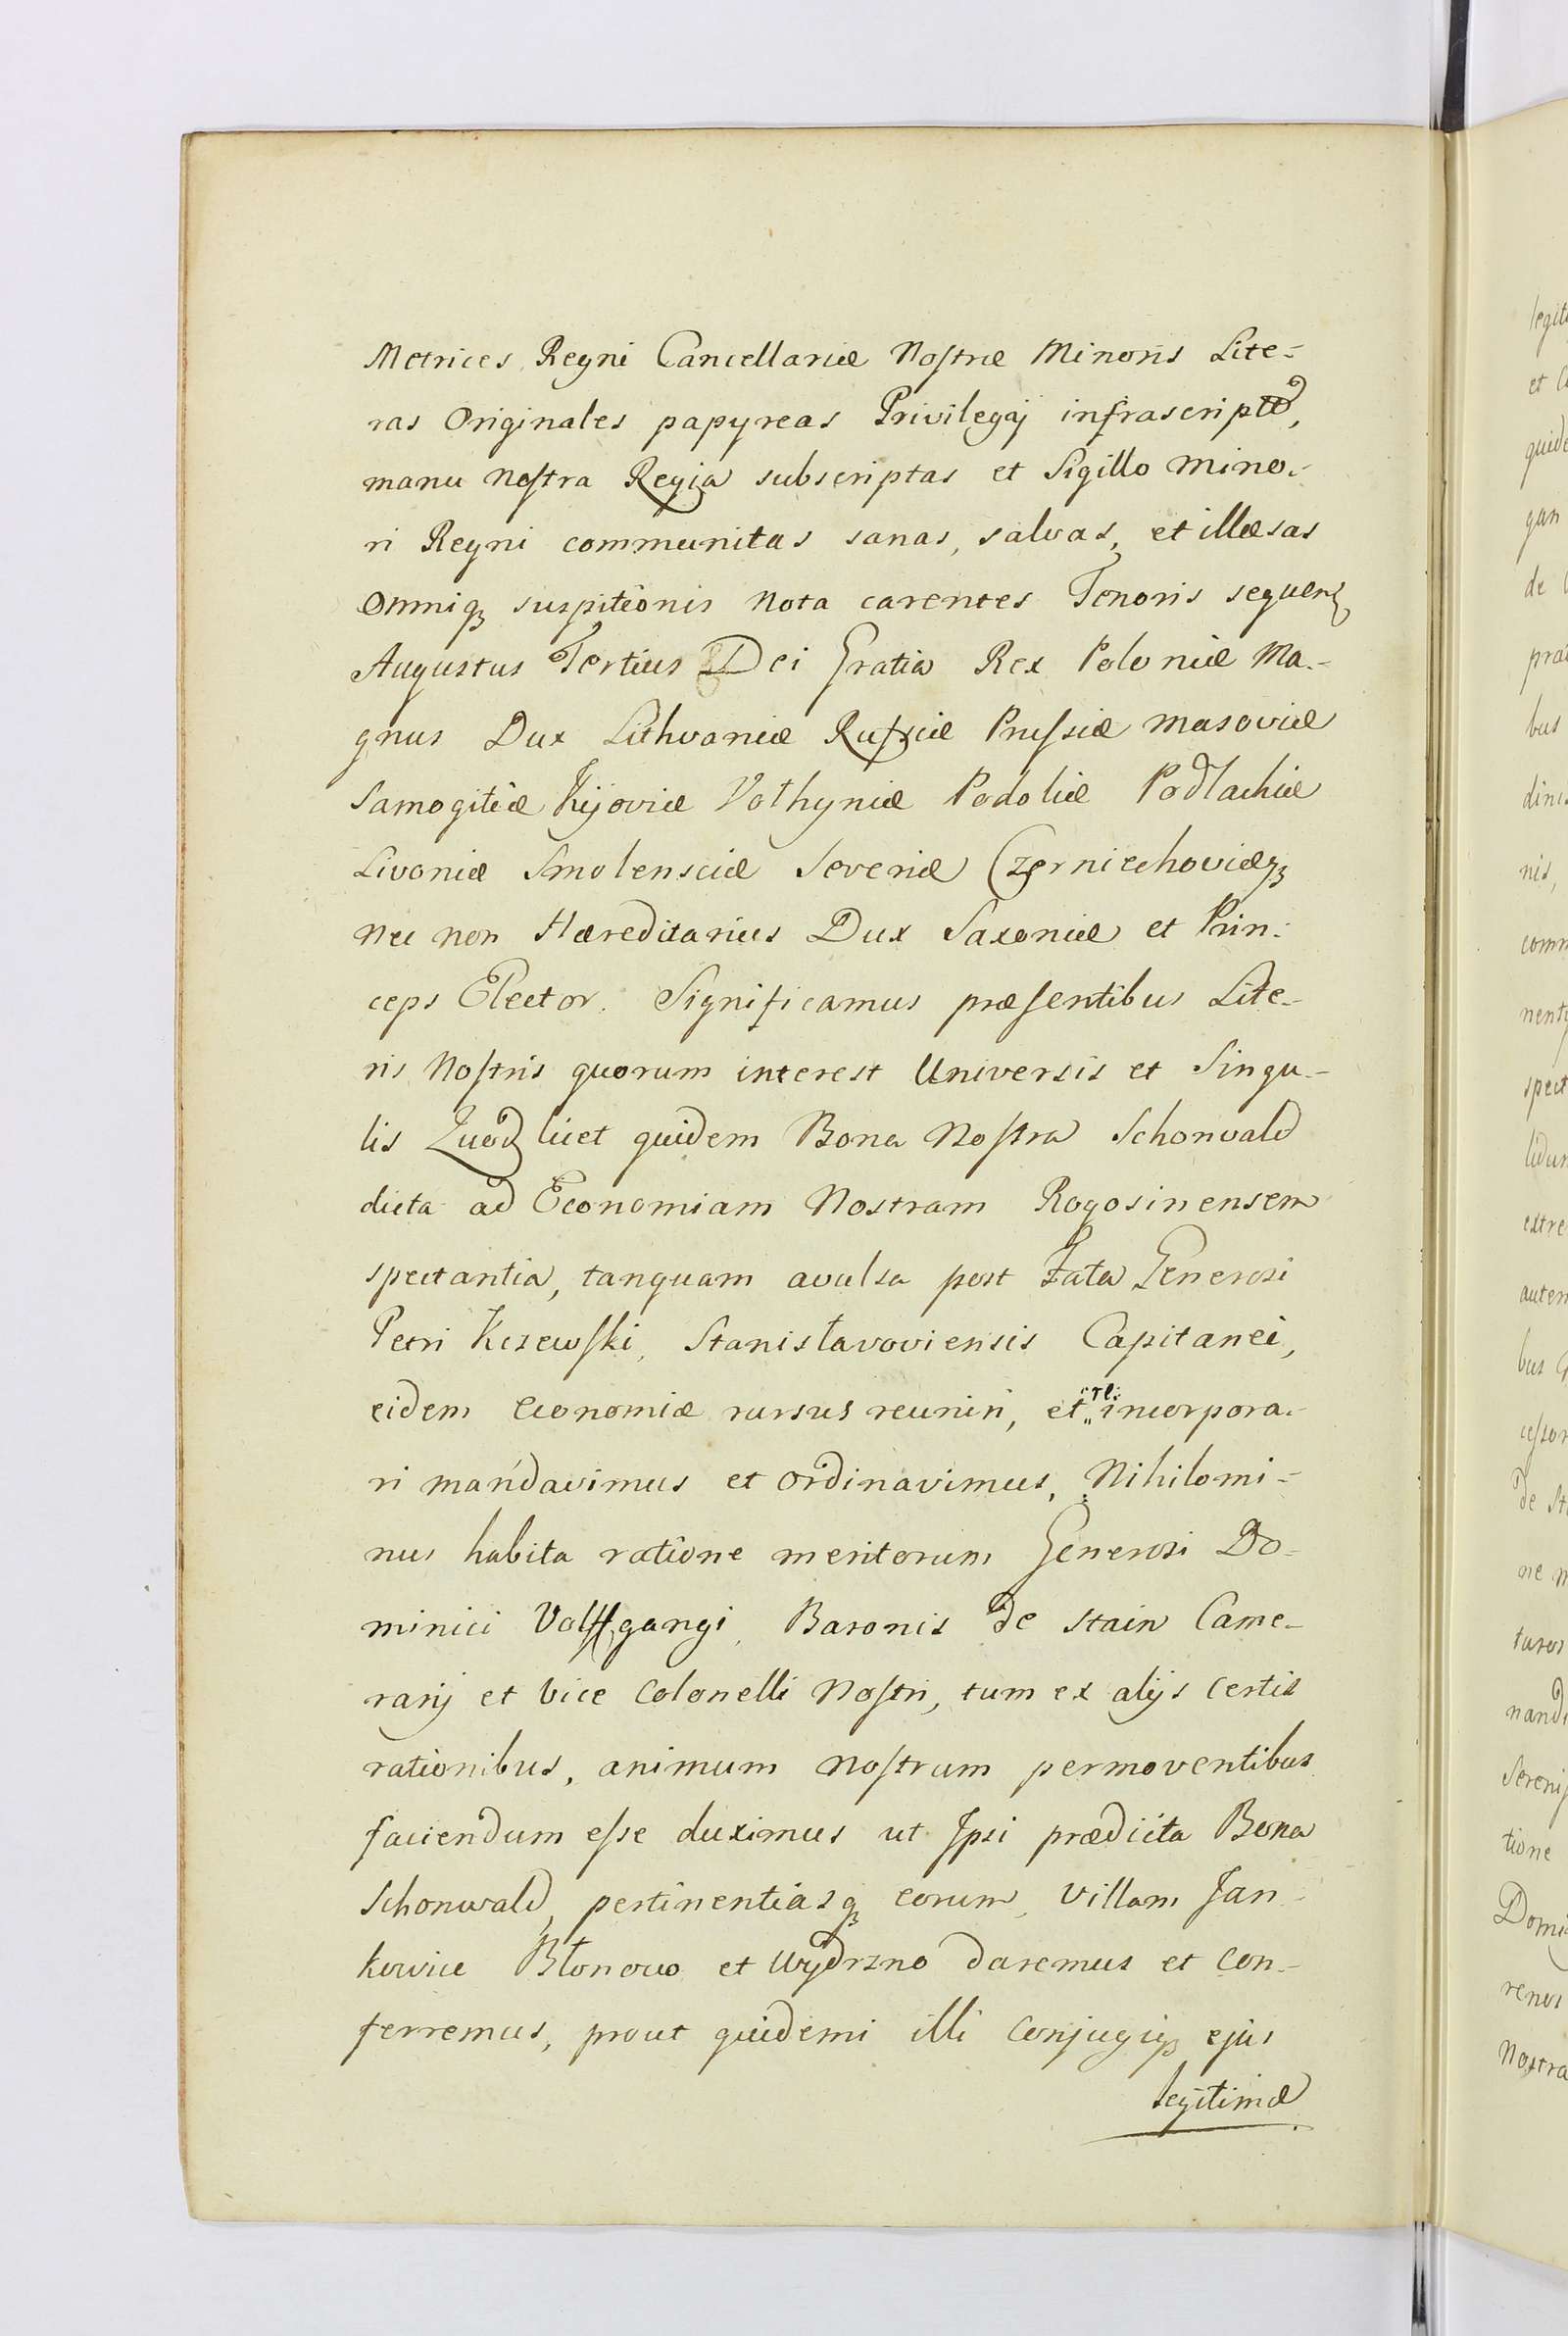 Metrices Regni Cancellariæ Nostræ Minoris Lite-
ras Originales papyreas Privilegij infrascripti,
manu nostra Regia subscriptas et Sigillo Mino-
ri Regni communitas sanas, salvas, et illæsas
Omniq3 suspitionis nota carentes Tenoris sequen
Augustus Tertius Dei Gratia Rex Poloniæ Ma-
gnus Dux Lithvaniæ Russiæ Prussiæ Masoviæ
Samogitiæ Kijoviæ Volhyniæ Podoliæ Podlachiæ
Livoniæ Smolensciæ Severiæ Czerniechoviæq3
nec non Hæreditarius Dux Saxoniæ et Prin-
ceps Elector. Significamus præsentibus Lite-
ris Nostris quorum interest Universis et Singu-
lis Quod licet quidem Bona Nostra Schonvald
dicta ad Economiam Nostram Rogosinensem
spectantia, tanquam avulsa post Fata Generosi
Petri Kczewski, Stanisłavoviensis Capitanei,
eidem Economiæ rursus reuniri, et re: incorpora-
ri mandavimus et ordinavimus, Nihilomi-
nus habita ratione meritorum Generosi Do-
minici Volffgangi, Baronis de Stain Came-
rarij et Vice Colonelli Nostri, tum ex alijs certis
rationibus, animum nostrum permoventibus
faciendum esse duximus ut Ipsi prædicta Bona
Schonwald, pertinentiasq3 eorum, Villam Jan-
kowice Błonowo et Wydrzno daremus et con-
ferremus, prout quidem illi Conjugiq3 ejus
legitimæ
legit
et C
quide
gan
de
præ
bus
dini
nis,
comm
nent
spect
lidum
extre
autem
bus
cessor
de St
ne
turos
nand
Sereni
tione
Domi
renos
Nostra